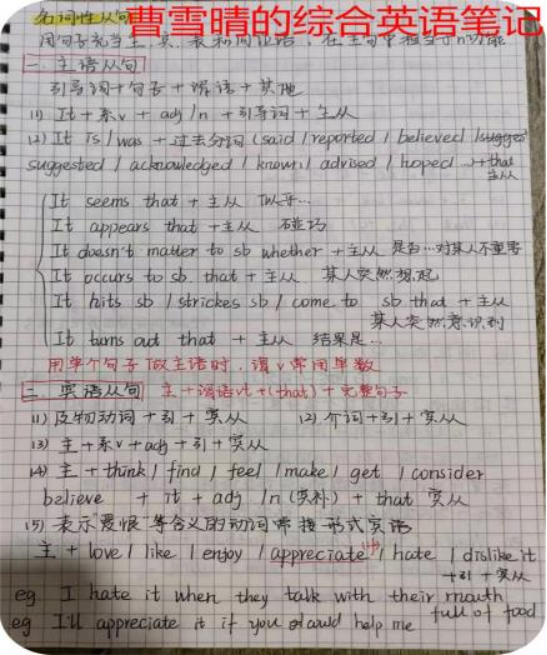 曹雪晴的综合英语笔记
名词性从句
用句子充当主.宾.表和同位语，在主句中相当于n功能
一.主语从句
引导词+句子+谓语+其他
(1) It + 系v + adj /n +引导词 + 主从
(2) It is / was + 过去分词 (said / reported / believed /suggest
suggested / acknowledged / known / advised / hoped …)+that
主从
It seems that + 主从 似乎…
It appears that +主从 碰巧
It doesn't matter to sb whether + 主从 是否…对某人不重要
It occurs to sb. that + 主从 某人突然想起
It hits sb / strickes sb / come to sb that + 主从
某人突然意识到
It turns out that + 主从 结果是…
用单个句子做主语时，谓v常用单数
二.宾语从句 主+谓语vt+(that)+完整句子
(1) 及物动词 +引 + 宾从 (2) 介词+引+宾从
(3) 主+系v+adj+引+宾从
(4) 主 + think / find / feel / make / get / consider
believe + it + adj /n (宾补) + that 宾从
(5) 表示"爱恨"等含义的动词常接形式宾语
主 + love / like / enjoy / appreciate / hate / dislike it
+引 + 宾从
eg I hate it when they talk with their mouth
full of food
eg I'll appreciate it if you could help me